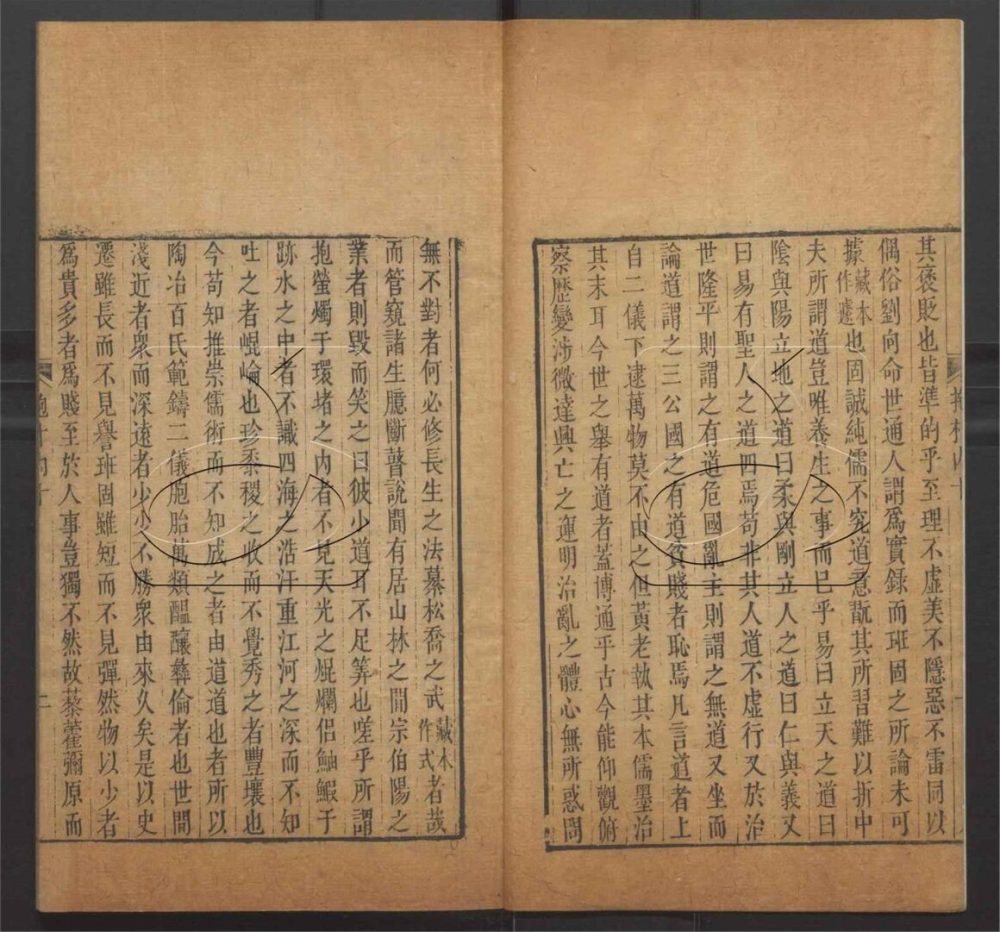 其褒貶也皆準的乎至理不虛美不隱惡不雷同以
偶俗劉向命世通人謂爲實錄而班固之所論未可
據藏本作遽也固誠純儒不究道意翫其所習難以折中
夫所謂道豈唯養生之事而已乎易曰立天之道曰
陰與陽立地之道曰柔與剛立人之道曰仁與義又
曰易有聖人之道四焉苟非其人道不虛行又於治
世隆平則謂之有道危國亂主則謂之無道又坐而
論道謂之三公國之有道貧賤者恥焉凡言道者上
自二儀下逮萬物莫不由之但黃老執其本儒墨治
其末耳今世之舉有道者蓋博通乎古今能仰觀俯
察歷變涉微達興亡之運明治亂之體心無所惑問
無不對者何必修長生之法慕松喬之武藏本作式者哉
而管窺諸生臆斷瞽說聞有居山林之間宗伯陽之
業者則毀而笑之曰彼小道耳不足筭也嗟乎所謂
抱螢燭于環堵之內者不見天光之焜爛侶鮋鰕于
跡水之中者不識四海之浩汗重江河之深而不知
吐之者崐崘也珍黍稷之收而不覺秀之者豐壤也
今苟知推崇儒術而不知成之者由道道也者所以
陶冶百氏範鑄二儀胞胎萬類醞釀彝倫者也世間
淺近者衆而深遠者少少不勝衆由來久矣是以史
遷雖長而不見譽班固雖短而不見彈然物以少者
爲貴多者爲賤至於人事豈獨不然故藜藿彌原而
二